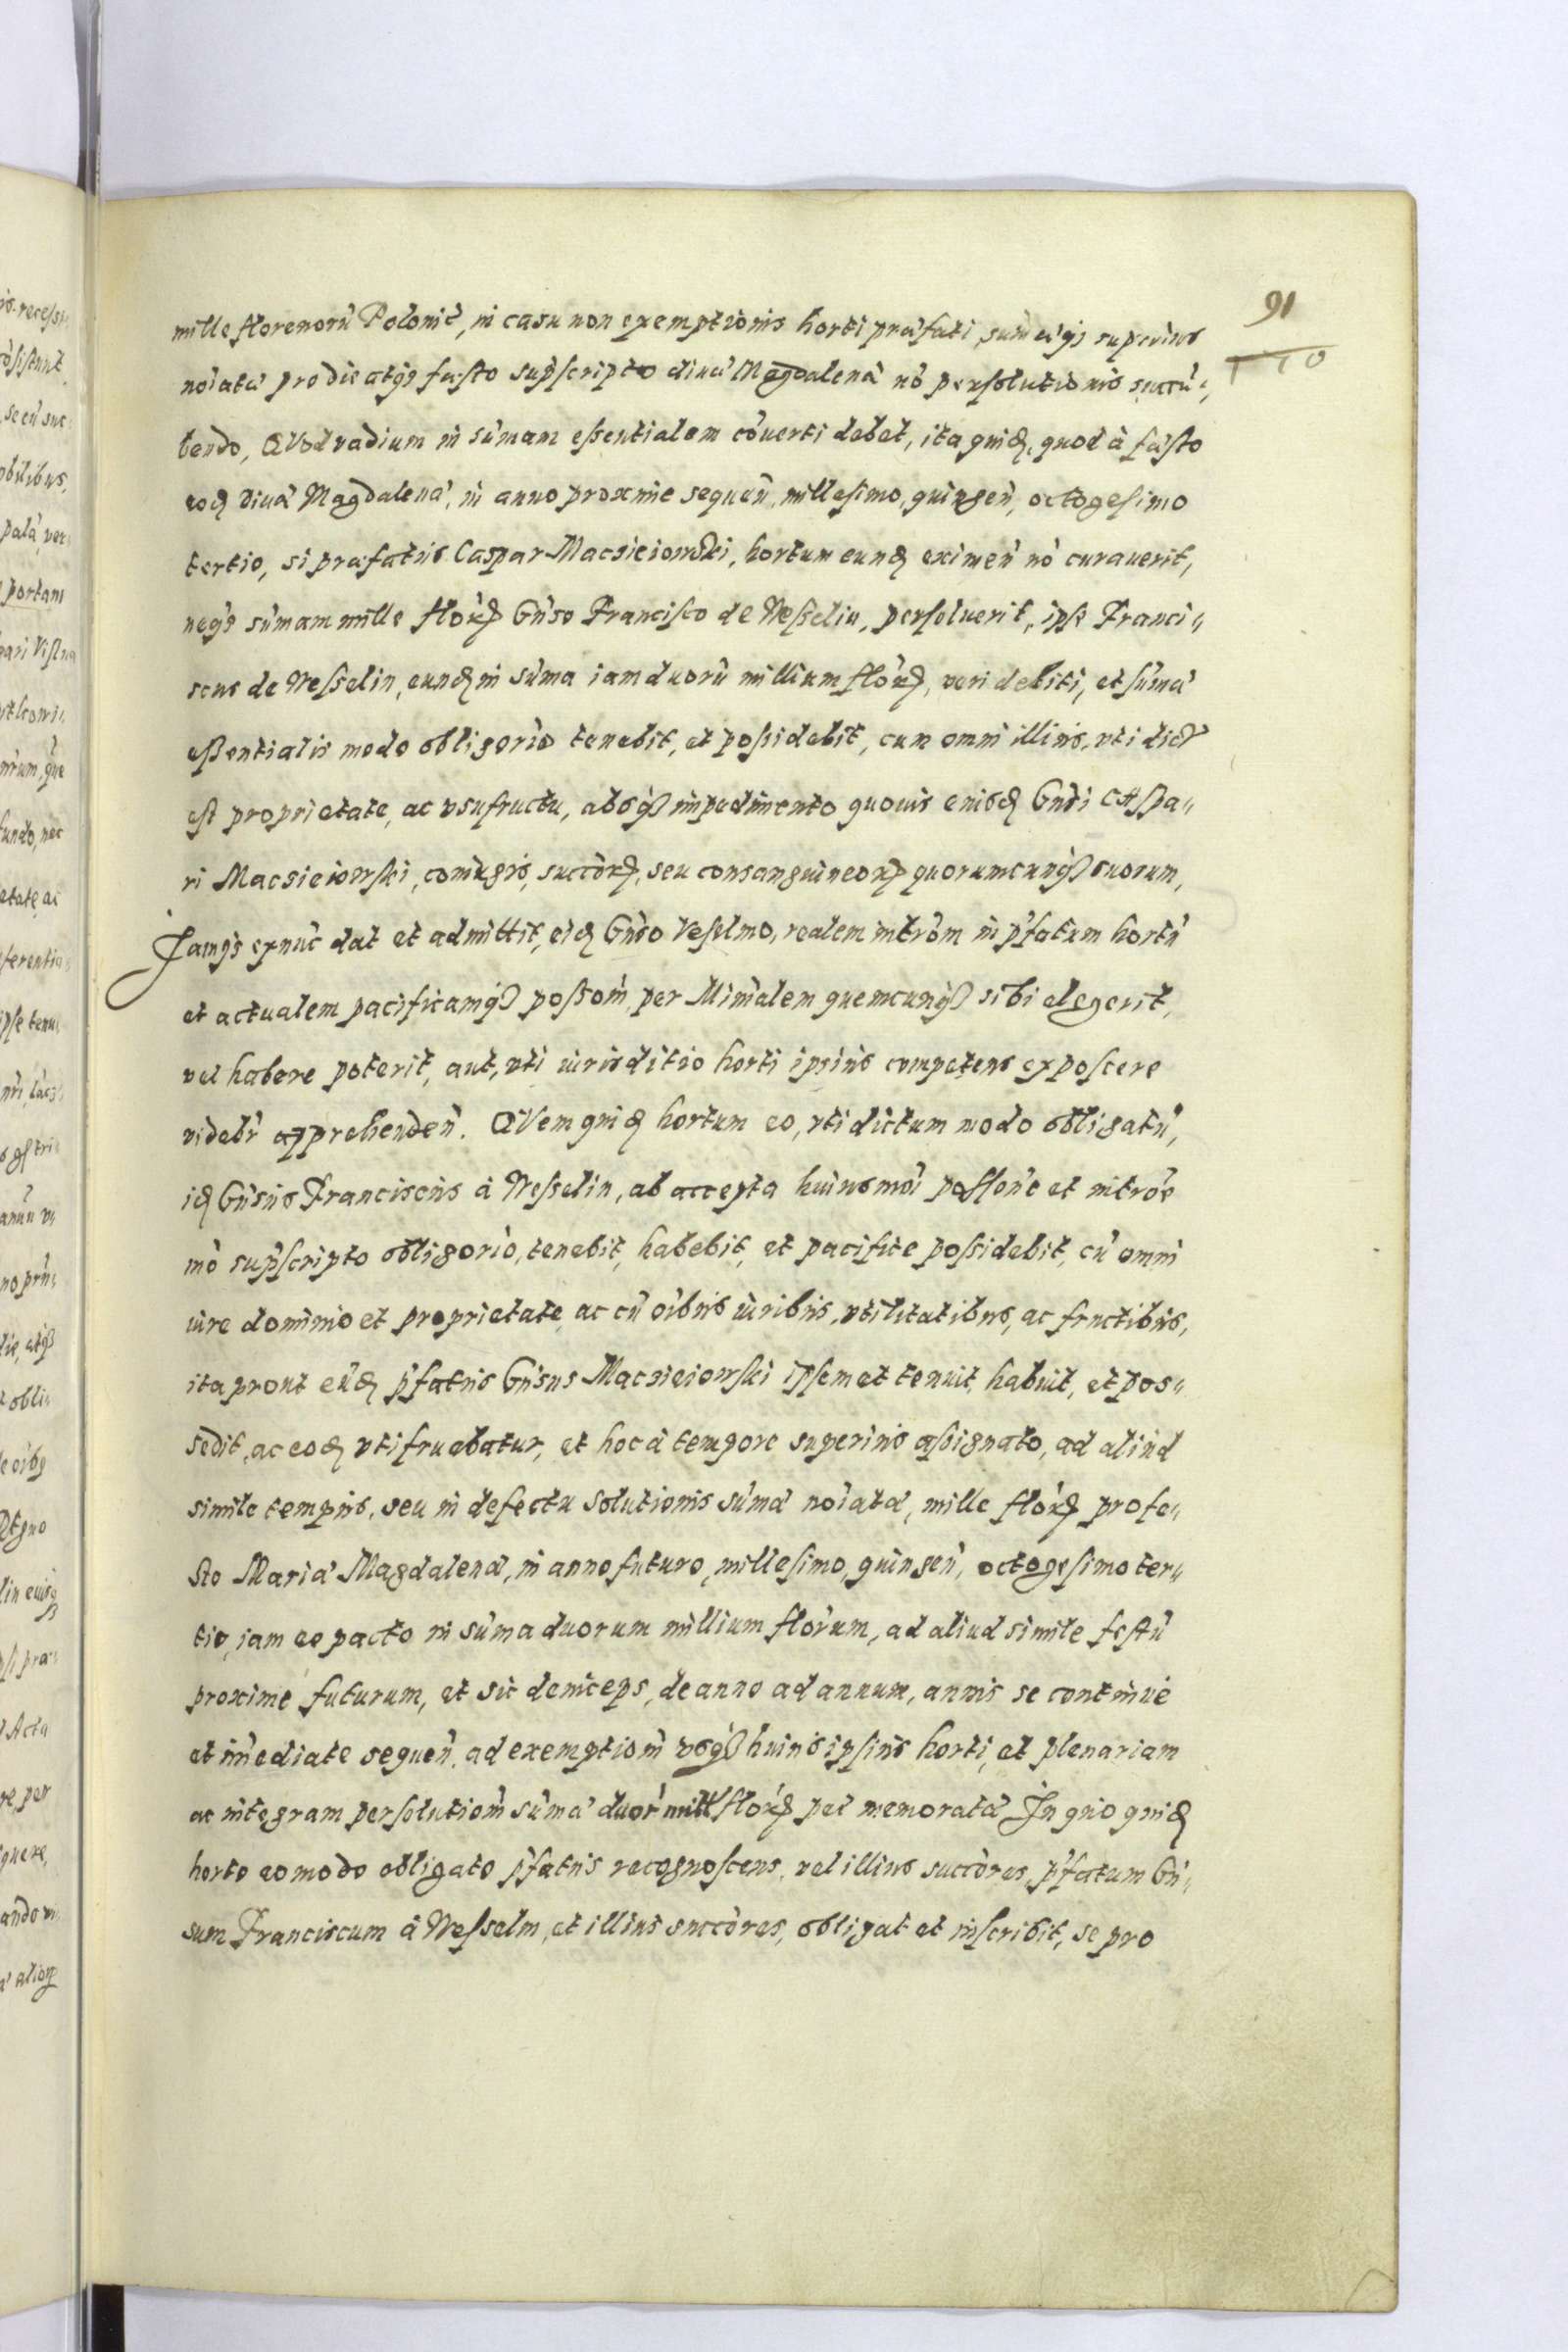 91
110
mille florenorũ Polonic̃, in casu non exemptionis horti præfati, sum̃æq́ꝫ superius
noĩatæ pro die atq́ꝫ fæsto suprascripto diuæ Magdalenæ nõ persolutionis succũ„
bendo, QVod vadium in sũmam eſsentialem cõuerti debet, ita quidẽ, quod à fæſto
eodẽ Diuæ Magdalenæ, in anno proxime sequeñ, milleſimo, quingeñ, octogeſimo
tertio, si præfatus Caspar Macsieiowſki, hortum eundẽ eximeñ nõ curauerit,
neq́ꝫ sũmam mille flõrꝫ Gñso Franciſco de Weſselin, perſoluerit, ipſe Franci„
scus de Weſselin, eundẽ in sũma iam duorũ millium flõrꝫ, veri debiti, et ſũmæ
eſsentialis modo obligõrio tenebit, et poſsidebit, cum omni illius, vti dict̃
eſt proprietate, ac vsufructu, absq́ꝫ impedimento quouis eiusdẽ Gñsi CASpa„
ri Macsieiowſki, coniugis, succõrꝫ, seu consanguineorꝫ quorumcunq́ꝫ suorum,
Jamq́ꝫ exnũc dat et admittit, eidẽ Gñso Veſelino, realem intrõm in p̃fatum hortũ
et actualem pacificamq́ꝫ poſsom̃, per Miñalem quemcunq́ꝫ sibi elegerit,
vel habere poterit, aut, vti iurisditio horti ipsius competens expoſcere
videbr̃ apprehendeñ. QVem quidẽ hortum eo, vti dictum modo obligatũ,
idẽ Gñsus Franciscus à Weſselin, ab accepta huiusmõi poſſone et intrõe
mõ suprſcripto obligorio, tenebit, habebit, et pacifice poſsidebit, cũ omni
iure dominio et proprietate ac cũ oĩbus iuribus, vtilitatibus, ac fructibus,
ita prout eũdẽ p̃fatus Gñsus Macsieiowſki ipſemet tenuit, habuit, et pos„
sedit, ac eodẽ vti fruebatur, et hoc à tempore superius aſsignato, ad aliud
simile tempus, seu in defectu solutionis sũmæ noĩatæ, mille flõrꝫ pro fe„
sto Mariæ Magdalenæ, in anno futuro, milleſimo, quingeñ, octogeſimo ter„
tio, iam eo pacto in sũma duorum millium flõrum, ad aliud simile feſtũ
proxime futurum, et sic deinceps, de anno ad annum, annis se continue
et im̃ediate sequeñ, ad exemptiom̃ vsq́ꝫ huius ipſius horti, et plenariam
ac integram perſolutiom̃ sũmæ duor̃ mill̃ flõrꝫ p̃memoratæ In quo quidẽ
horto eo modo obligato p̃fatus recognoſcens, vel illius succõres, p̃fatum Gñ„
sum Franciscum à Weſselin, et illius succõres, obligat et inſcribit, se pro